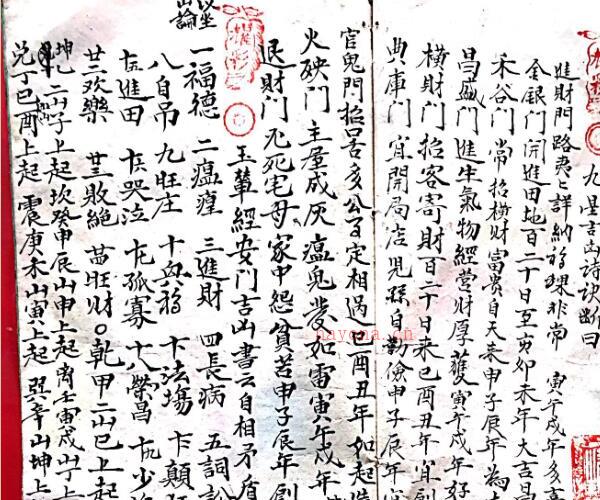 九星吉凶詩訣斷曰
進財門路
詳納福 非常 寅午戌年多
金銀門開進田地百二十日至 卯未年大吉昌
禾谷門 常招橫財富貴自天來申子辰年為
昌盛門進生氣物經營財厚獲寅午戌年好
橫財門招客寄財百二十日來巳酉丑年宜
典庫門 宜開局店兒孫自勤儉申子辰年
官鬼門招 定相 巳酉丑年如起
火殃門 主屋成灰瘟鬼發如雷寅午戌年
退財門 死宅母家中怨貧苦申子辰年
玉輦經安門吉凶書云自相矛盾
坐山論
一福德 二瘟 三進財 四長病 五詞訟
八自吊 九旺庄 十 法場 顛
進田 哭泣 孤寡 榮昌 少
歡樂 敗絕 旺財○乾甲二山巳上起
坤乙二山子上起坎癸申辰山申上起離壬寅戌山 上
兌丁巳酉 上起 震庚 未山寅上起 巽辛山坤上
nayona.cn